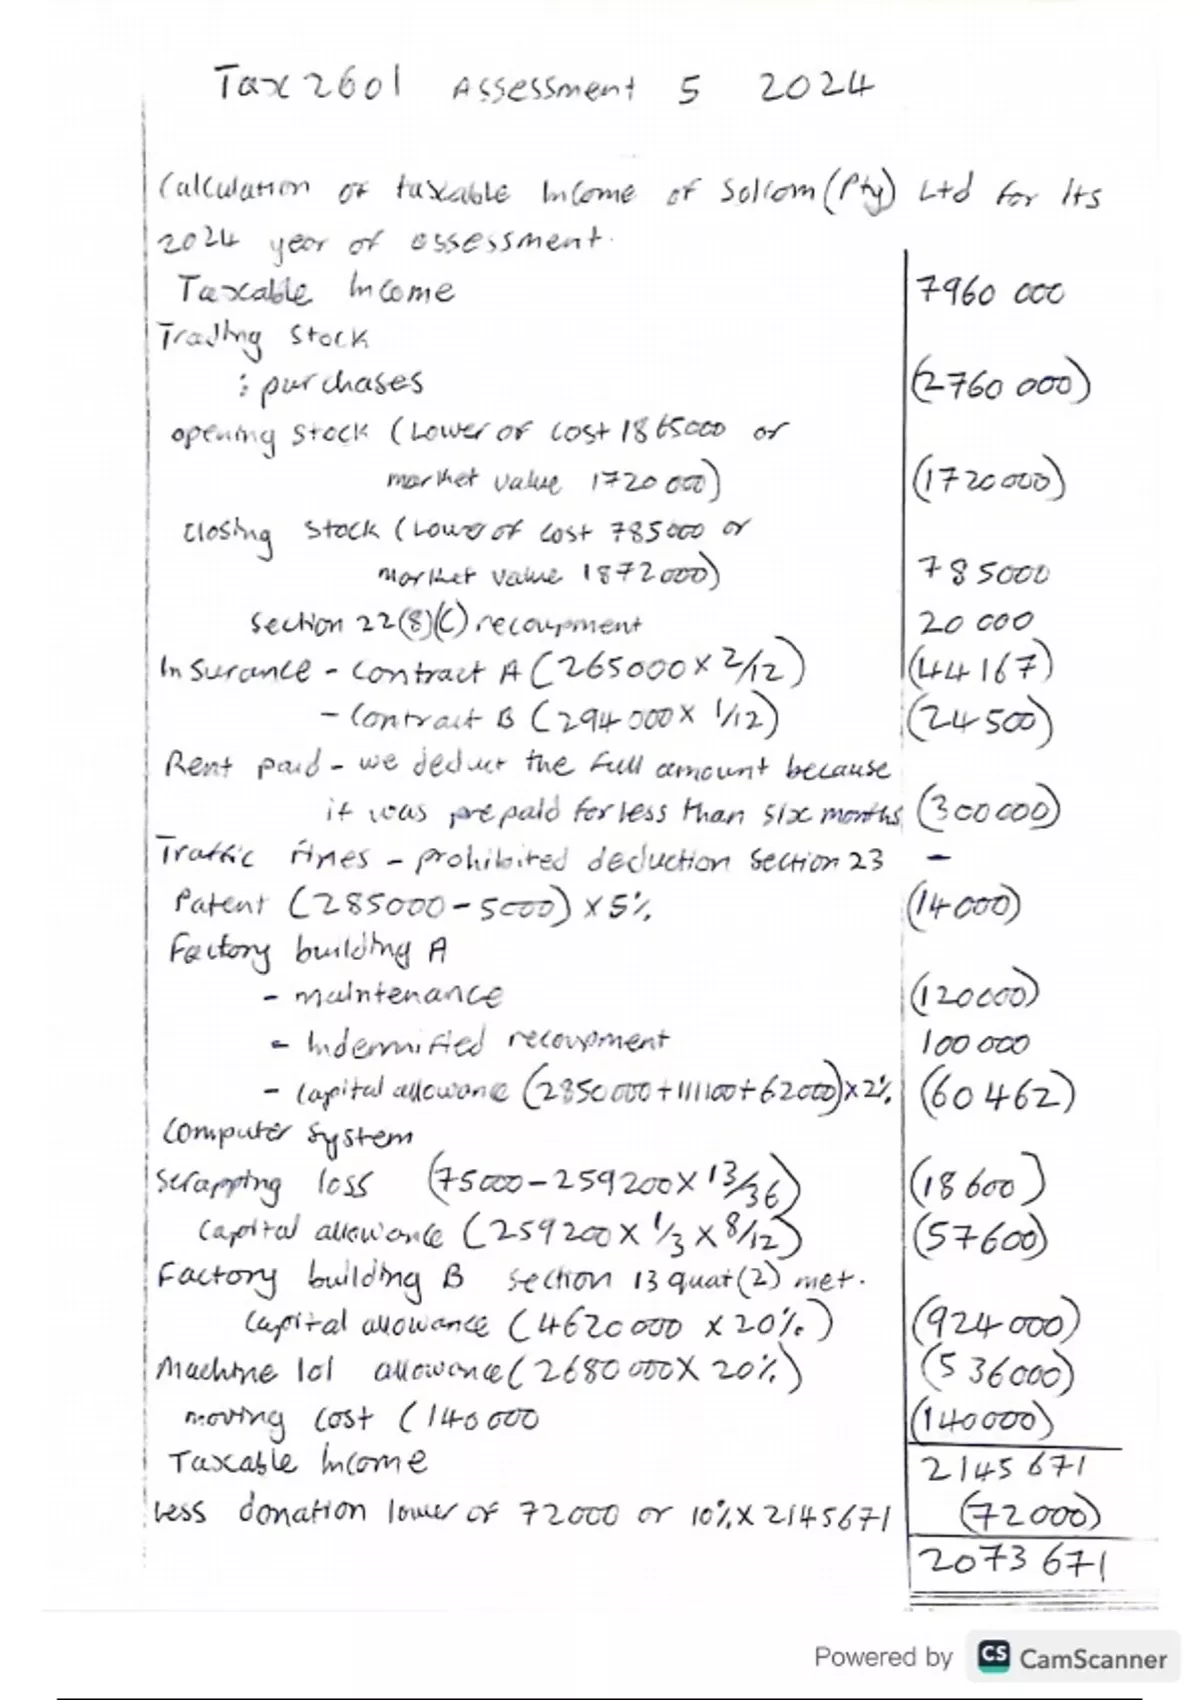 Tax2601 Assessment 5 2024
Calculation of taxable Income of Solcom (Pty) Ltd for its
2024 year of assessment.
Taxable Income 7960 000
Trading Stock
: purchases (2760 000)
opening stock (Lower of cost 1865000 or
market value 1720 000) (1720000)
Closing stock (Lower of cost 785000 or
market value 1872000) 785000
Section 22(8)(C) recoupment 20 000
Insurance - Contract A (265000 x 2/12) (44167)
- Contract B (294 000 x 1/12) (24500)
Rent paid - we deduct the full amount because
it was prepaid for less than six months (300000)
Traffic fines - prohibited deduction Section 23 -
Patent (285000 - 5000) x 5% (14000)
Factory building A
- maintenance (120000)
- Indemnified recoupment 100 000
- Capital allowance (2850000 + 111100 + 62000) x 2% (60462)
Computer System
Scrapping loss (75000 - 259200 x 13/36) (18600)
Capital allowance (259200 x 1/3 x 8/12) (57600)
Factory building B Section 13 quat (2) met.
Capital allowance (4620000 x 20%) (924000)
Machine 101 allowance (2680000 x 20%) (536000)
moving cost (140000 (140000)
Taxable Income 2145671
Less donation lower of 72000 or 10% x 2145671 (72000)
2073671
Powered by CS CamScanner